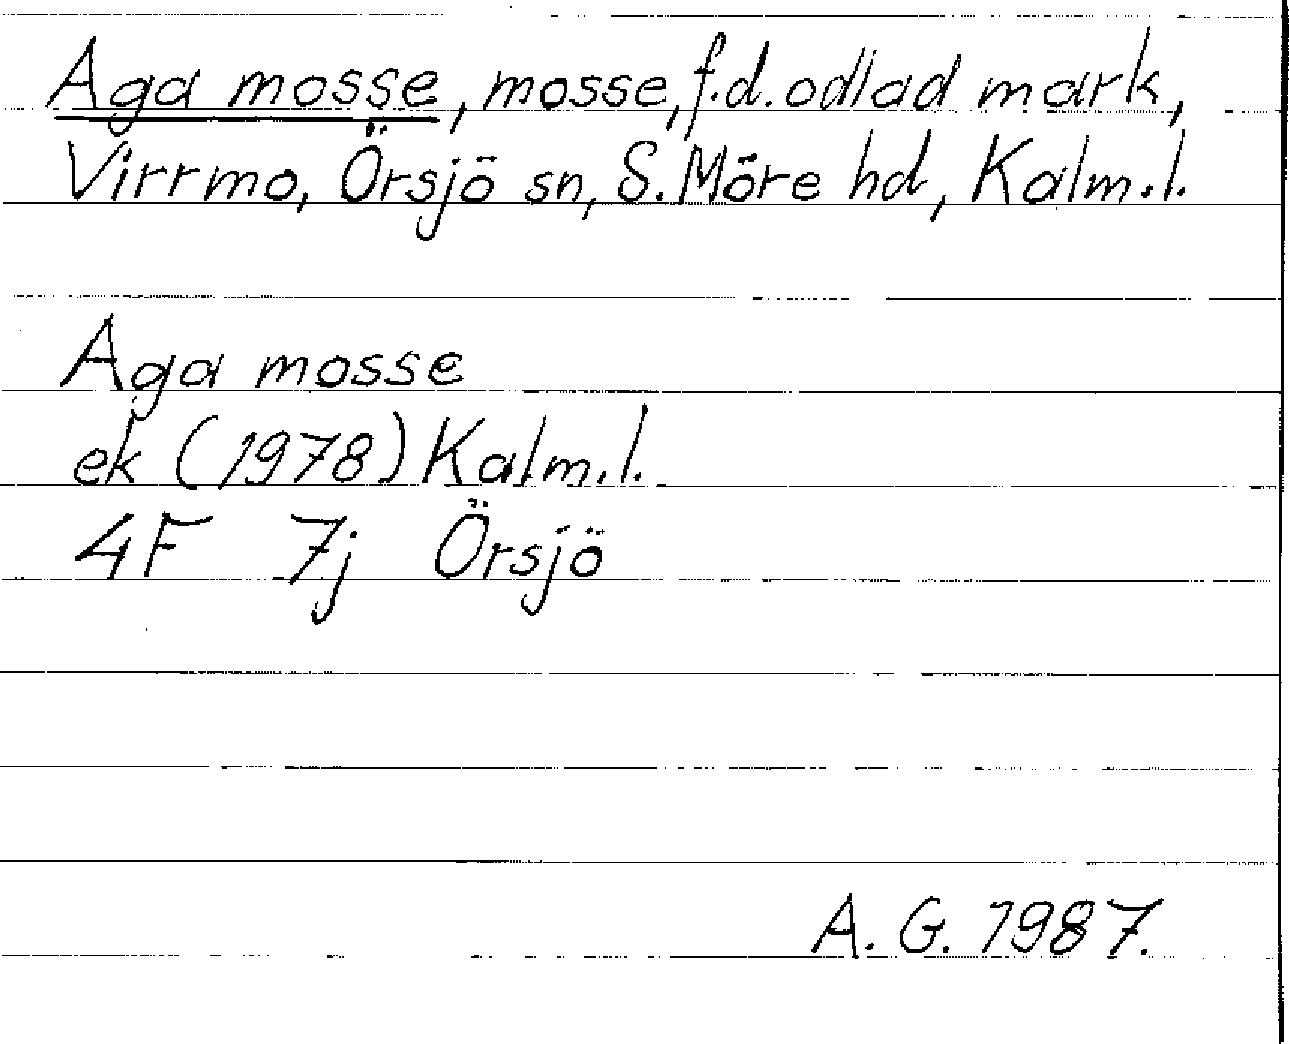 Aga mosse, mosse, f.d. odlad mark,
Virrmo, Örsjö sn, S. Möre hd, Kalm.l.
Aga mosse
ek (1978) Kalm.l.
4F 7j Örsjö
A. G. 1987.